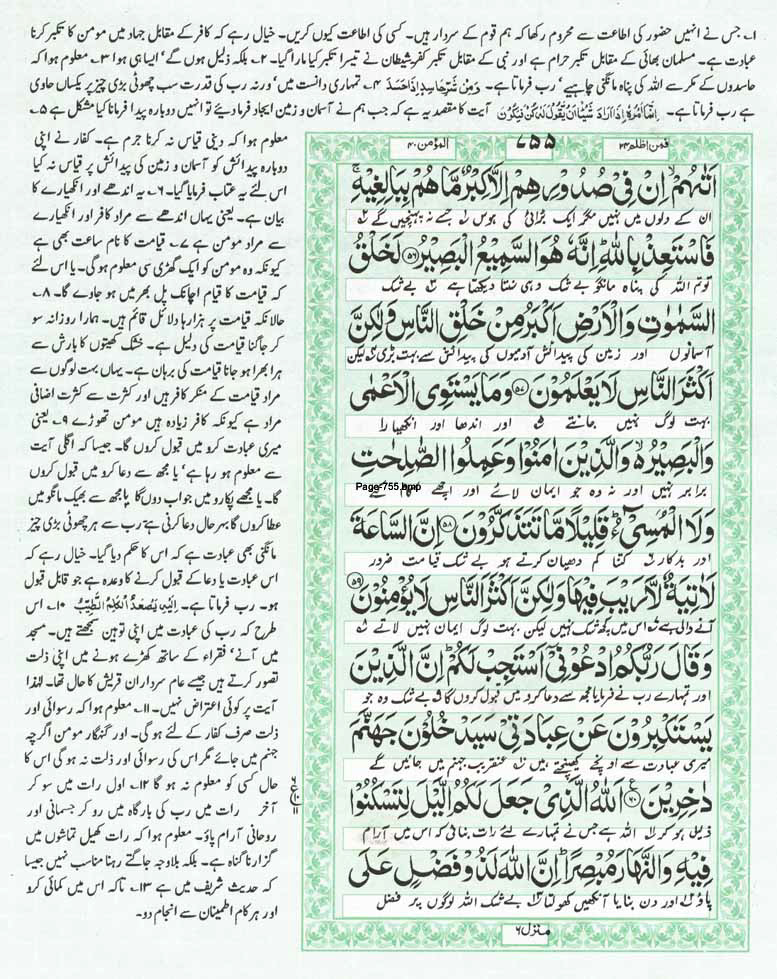 ۱۔ جس نے انہیں حضور کی اطاعت سے محروم رکھا کہ ہم قوم کے سردار ہیں۔ کسی کی اطاعت کیوں کریں۔ خیال رہے کہ کافر کے مقابل جہاد میں مومن کا تکبر کرنا
عبادت ہے۔ مسلمان بھائی کے مقابل تکبر حرام ہے اور نبی کے مقابل تکبر کفر شیطان نے تیسرا تکبر کیا مارا گیا۔ ۲۔ بلکہ ذلیل ہوں گے' ایسا ہی ہوا ۳۔ معلوم ہوا کہ
حاسدوں کے مکر سے اللہ کی پناہ مانگنی چاہیے' رب فرماتا ہے۔ وَمِنْ شَرِّ حَاسِدٍ اِذَا حَسَدَ ۴۔ تمہاری دانست میں' ورنہ رب کی قدرت سب چھوٹی بڑی چیز پر یکساں حاوی
ہے رب فرماتا ہے۔ اِنَّمَا اَمْرُهٗ اِذَا اَرَادَ شَيْئًا اَنْ يَّقُوْلَ لَهٗ كُنْ فَيَكُوْنُ آیت کا مقصد یہ ہے کہ جب ہم نے آسمان و زمین ایجاد فرما دیئے تو انہیں دوبارہ پیدا فرمانا کیا مشکل ہے ۵۔
معلوم ہوا کہ دینی قیاس نہ کرنا جرم ہے۔ کفار نے اپنی
دوبارہ پیدائش کو آسمان و زمین کی پیدائش پر قیاس نہ کیا
اس لئے یہ عتاب فرمایا گیا۔ ۶۔ یہ اندھے اور انکھیارے کا
بیان ہے۔ یعنی یہاں اندھے سے مراد کافر اور انکھیارے
سے مراد مومن ہے ۷۔ قیامت کا نام ساعت بھی ہے
کیونکہ وہ مومن کو ایک گھڑی سی معلوم ہو گی۔ یا اس لئے
کہ قیامت کا قیام اچانک پل بھر میں ہو جاوے گا۔ ۸۔
حالانکہ قیامت پر ہزارہا دلائل قائم ہیں۔ ہمارا روزانہ سو
کر جاگنا قیامت کی دلیل ہے۔ خشک کھیتوں کا بارش سے
ہرا بھرا ہو جانا قیامت کی برہان ہے۔ یہاں بہت لوگوں سے
مراد قیامت کے منکر کافر ہیں اور کثرت سے کثرت اضافی
مراد ہے کیونکہ کافر زیادہ ہیں مومن تھوڑے ۹۔ یعنی
میری عبادت کرو میں قبول کروں گا۔ جیسا کہ اگلی آیت
سے معلوم ہو رہا ہے' یا مجھ سے دعا کرو میں قبول کروں
گا۔ یا مجھے پکارو میں جواب دوں گا یا مجھ سے بھیک مانگو میں
عطا کروں گا بہرحال دعا کرنی ہے رب سے ہر چھوٹی بڑی چیز
مانگنی بھی عبادت ہے کہ اس کا حکم دیا گیا۔ خیال رہے کہ
اس عبادت یا دعا کے قبول کرنے کا وعدہ ہے جو قابل قبول
ہو۔ رب فرماتا ہے۔ اِلَيْهِ يَصْعَدُ الْكَلِمُ الطَّيِّبُ ۱۰۔ اس
طرح کہ رب کی عبادت میں اپنی توہین سمجھتے ہیں۔ مسجد
میں آنے' فقراء کے ساتھ کھڑے ہونے میں اپنی ذلت
تصور کرتے ہیں جیسے عام سرداران قریش کا حال تھا۔ لہٰذا
آیت پر کوئی اعتراض نہیں۔ ۱۱۔ معلوم ہوا کہ رسوائی اور
ذلت صرف کفار کے لئے ہو گی۔ اور گنہگار مومن اگرچہ
جہنم میں جائے مگر اس کی رسوائی اور ذلت نہ ہو گی اس کا
حال کسی کو معلوم نہ ہو گا ۱۲۔ اول رات میں سو کر
آخر رات میں رب کی بارگاہ میں رو کر جسمانی اور
روحانی آرام پاؤ۔ معلوم ہوا کہ رات کھیل تماشوں میں
گزارنا گناہ ہے۔ بلکہ بلاوجہ جاگتے رہنا مناسب نہیں جیسا
کہ حدیث شریف میں ہے ۱۳۔ تاکہ اس میں کمائی کرو
اور ہر کام اطمینان سے انجام دو۔
فمن اظلم ۲۴
۷۵۵
المؤمن ۴۰
اَتٰىهُمْ اِنْ فِیْ صُدُوْرِهِمْ اِلَّا كِبْرٌ مَّا هُمْ بِبَالِغِیْهِ
ان کے دلوں میں نہیں مگر ایک بڑائی کی ہوس جسے نہ پہنچیں گے
فَاسْتَعِذْ بِاللّٰهِ اِنَّهٗ هُوَ السَّمِیْعُ الْبَصِیْرُ ۵۶ لَخَلْقُ
تو تم اللہ کی پناہ مانگو بے شک وہی سنتا دیکھتا ہے بے شک
السَّمٰوٰتِ وَالْاَرْضِ اَكْبَرُ مِنْ خَلْقِ النَّاسِ وَلٰكِنَّ
آسمانوں اور زمین کی پیدائش آدمیوں کی پیدائش سے بہت بڑی لیکن
اَكْثَرَ النَّاسِ لَا یَعْلَمُوْنَ ۵۷ وَمَا یَسْتَوِی الْاَعْمٰى
بہت لوگ نہیں جانتے اور اندھا اور انکھیارا
وَالْبَصِیْرُ وَالَّذِیْنَ اٰمَنُوْا وَعَمِلُوا الصّٰلِحٰتِ
برابر نہیں اور نہ وہ جو ایمان لائے اور اچھے کام کئے
Page-755.bmp
وَلَا الْمُسِیْٓءُ قَلِیْلًا مَّا تَتَذَكَّرُوْنَ ۵۸ اِنَّ السَّاعَةَ
اور بدکار کتنا کم دھیان کرتے ہو بے شک قیامت ضرور
لَاٰتِیَةٌ لَّا رَیْبَ فِیْهَا وَلٰكِنَّ اَكْثَرَ النَّاسِ لَا یُؤْمِنُوْنَ ۵۹
آنے والی ہے اس میں کچھ شک نہیں لیکن بہت لوگ ایمان نہیں لاتے
وَقَالَ رَبُّكُمُ ادْعُوْنِیْٓ اَسْتَجِبْ لَكُمْ اِنَّ الَّذِیْنَ
اور تمہارے رب نے فرمایا مجھ سے دعا کرو میں قبول کروں گا بے شک وہ جو
یَسْتَكْبِرُوْنَ عَنْ عِبَادَتِیْ سَیَدْخُلُوْنَ جَهَنَّمَ
میری عبادت سے اونچے کھنچتے ہیں عنقریب جہنم میں جائیں گے
دٰخِرِیْنَ ۶۰ اَللّٰهُ الَّذِیْ جَعَلَ لَكُمُ الَّیْلَ لِتَسْكُنُوْا
ذلیل ہو کر اللہ ہے جس نے تمہارے لئے رات بنائی کہ اس میں آرام
فِیْهِ وَالنَّهَارَ مُبْصِرًا اِنَّ اللّٰهَ لَذُوْ فَضْلٍ عَلَى
پاؤ اور دن بنایا آنکھیں کھولتا بے شک اللہ لوگوں پر فضل
منزل ۶